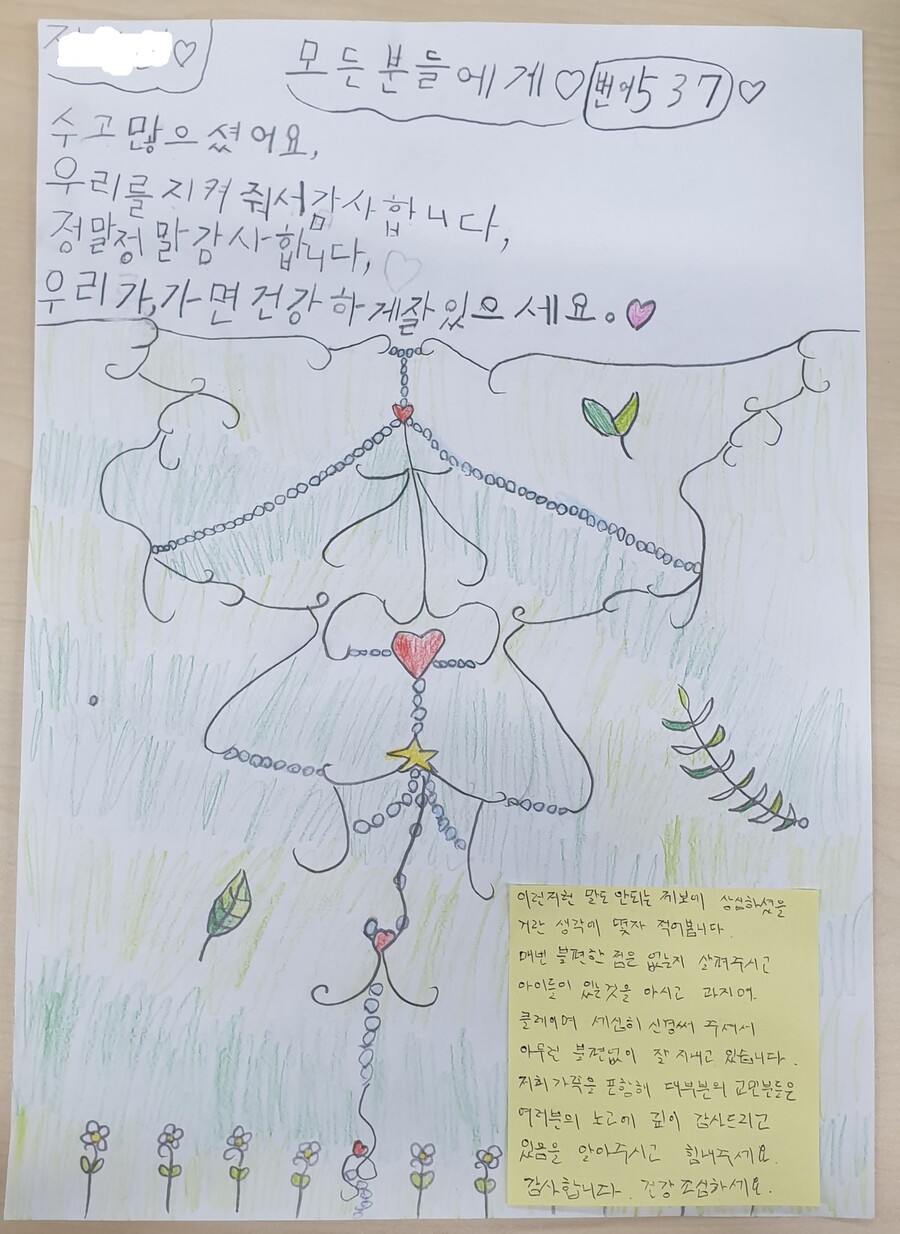 모든분들에게♡ 번어537♡
수고많으셨어요,
우리를지켜줘서감사합니다,
정말정말감사합니다,♡
우리가,가면건강하게잘있으세요。♥
이런저런 말도 안되는 제보에 상심하셨을
거란 생각에 몇자 적어봅니다.
매번 불편한 점은 없는지 살펴주시고
아이들이 있는것을 아시고 과자며
클레이며 세심히 신경써 주셔서
아무런 불편없이 잘 지내고 있습니다.
저희 가족을 포함해 대부분의 교민분들은
여러분의 노고에 깊이 감사드리고
있음을 알아주시고 힘내주세요.
감사합니다. 건강 조심하세요.